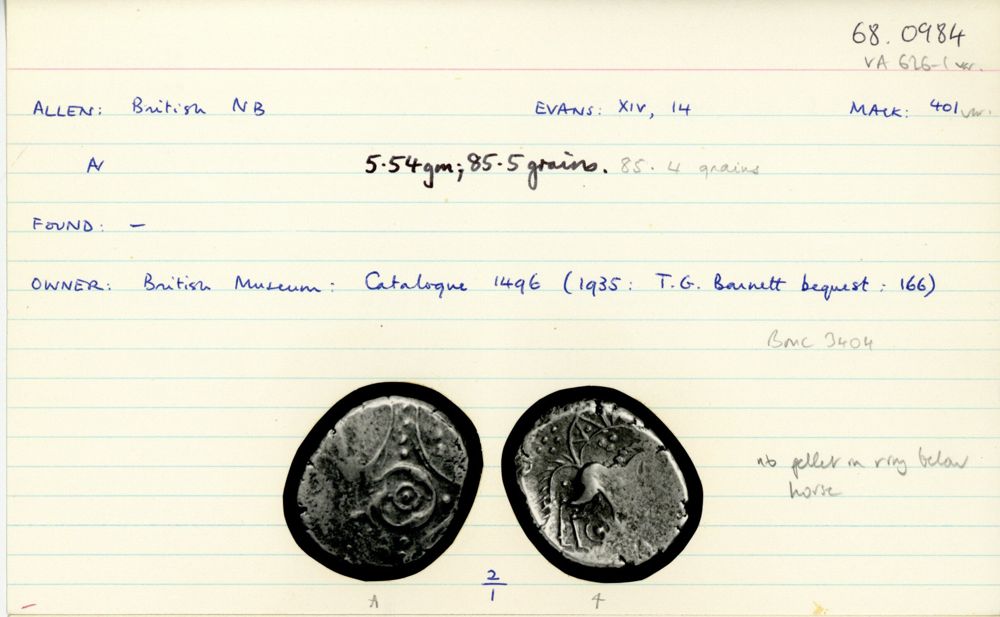 68.0984
VA 626-1 var.
ALLEN: British NB EVANS: XIV, 14 MACK: 401 var.
AV 5.54gm; 85.5 grains. 85.4 grains
FOUND: —
OWNER: British Museum: Catalogue 1496 (1935: T.G. Barnett bequest: 166)
BMC 3404
nb pellet in ring below
horse
2
1
A 4